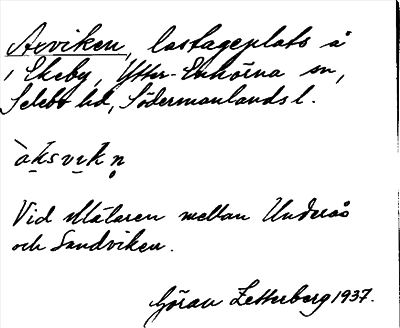 Axviken, lastageplats å
i Ekeby, Ytter-Enhörna sn,
Selebo hd, Södermanlands l.
Vid Mälaren mellan Underås
och Sandviken.
Göran Zetterberg 1937.